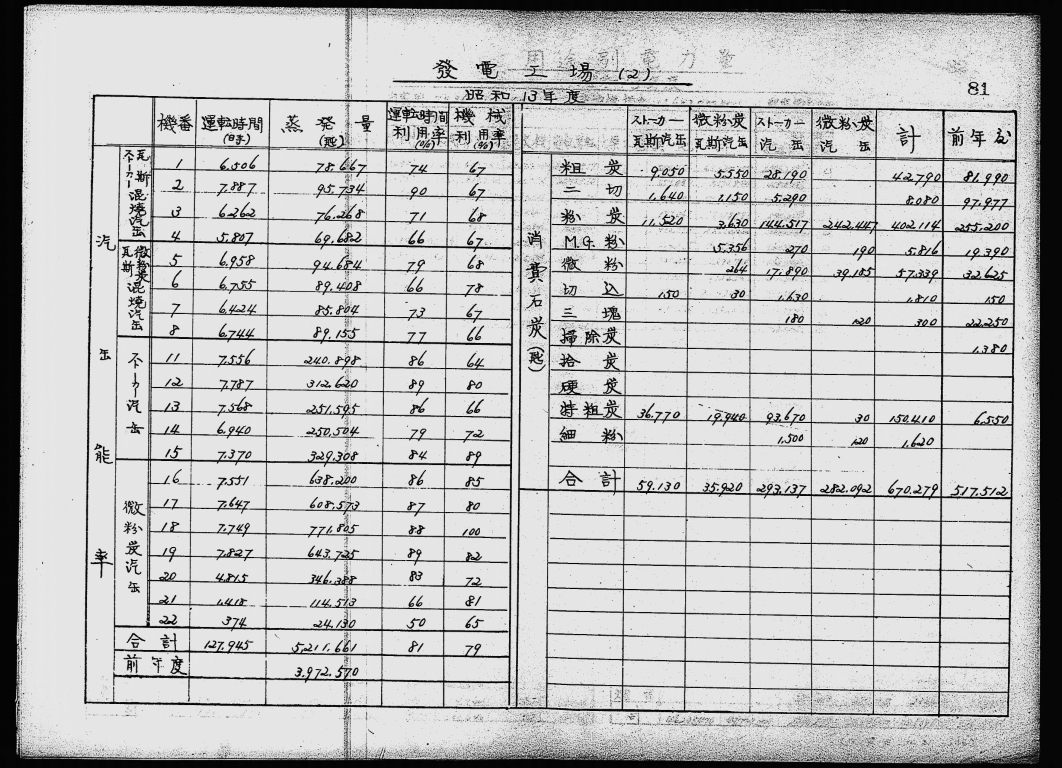 發電工場(2)
81
昭和13年度
機番 運転時間(時) 蒸発量(瓲) 運転時間利用率(%) 機械利用率(%)
汽缶能率
瓦斯ストーカー混焼汽缶
1 6.506 78.667 74 67
2 7.887 95.734 90 67
3 6.262 76.268 71 68
4 5.807 69.682 66 67
瓦斯微粉炭混焼汽缶
5 6.958 94.684 79 68
6 6.755 89.408 66 78
7 6.424 85.804 73 67
8 6.744 89.155 77 66
ストーカー汽缶
11 7.556 240.898 86 64
12 7.787 312.620 89 80
13 7.568 251.595 86 66
14 6.940 250.504 79 72
15 7.370 329.308 84 89
微粉炭汽缶
16 7.551 638.200 86 85
17 7.647 608.573 87 80
18 7.749 771.805 88 100
19 7.827 643.725 89 82
20 4.815 346.388 83 72
21 1.418 114.513 66 81
22 374 24.130 50 65
合計 127.945 5.211.661 81 79
前年度 3.972.570
消費石炭(瓲)
ストーカー瓦斯汽缶 微粉炭瓦斯汽缶 ストーカー汽缶 微粉炭汽缶 計 前年分
粗炭 9.050 5.550 28.190 42.790 81.990
二切 1.640 1.150 5.290 8.080 97.977
粉炭 11.520 3.630 144.517 242.447 402.114 255.200
M.G.粉 5.356 270 190 5.816 19.390
微粉 264 17.890 39.185 57.339 32.625
切込 150 30 1.630 1.810 150
三塊 180 120 300 22.250
掃除炭 1.380
拾炭
硬炭
特粗炭 36.770 19.940 93.670 30 150.410 6.550
細粉 1.500 120 1.620
合計 59.130 35.920 293.137 282.092 670.279 517.512